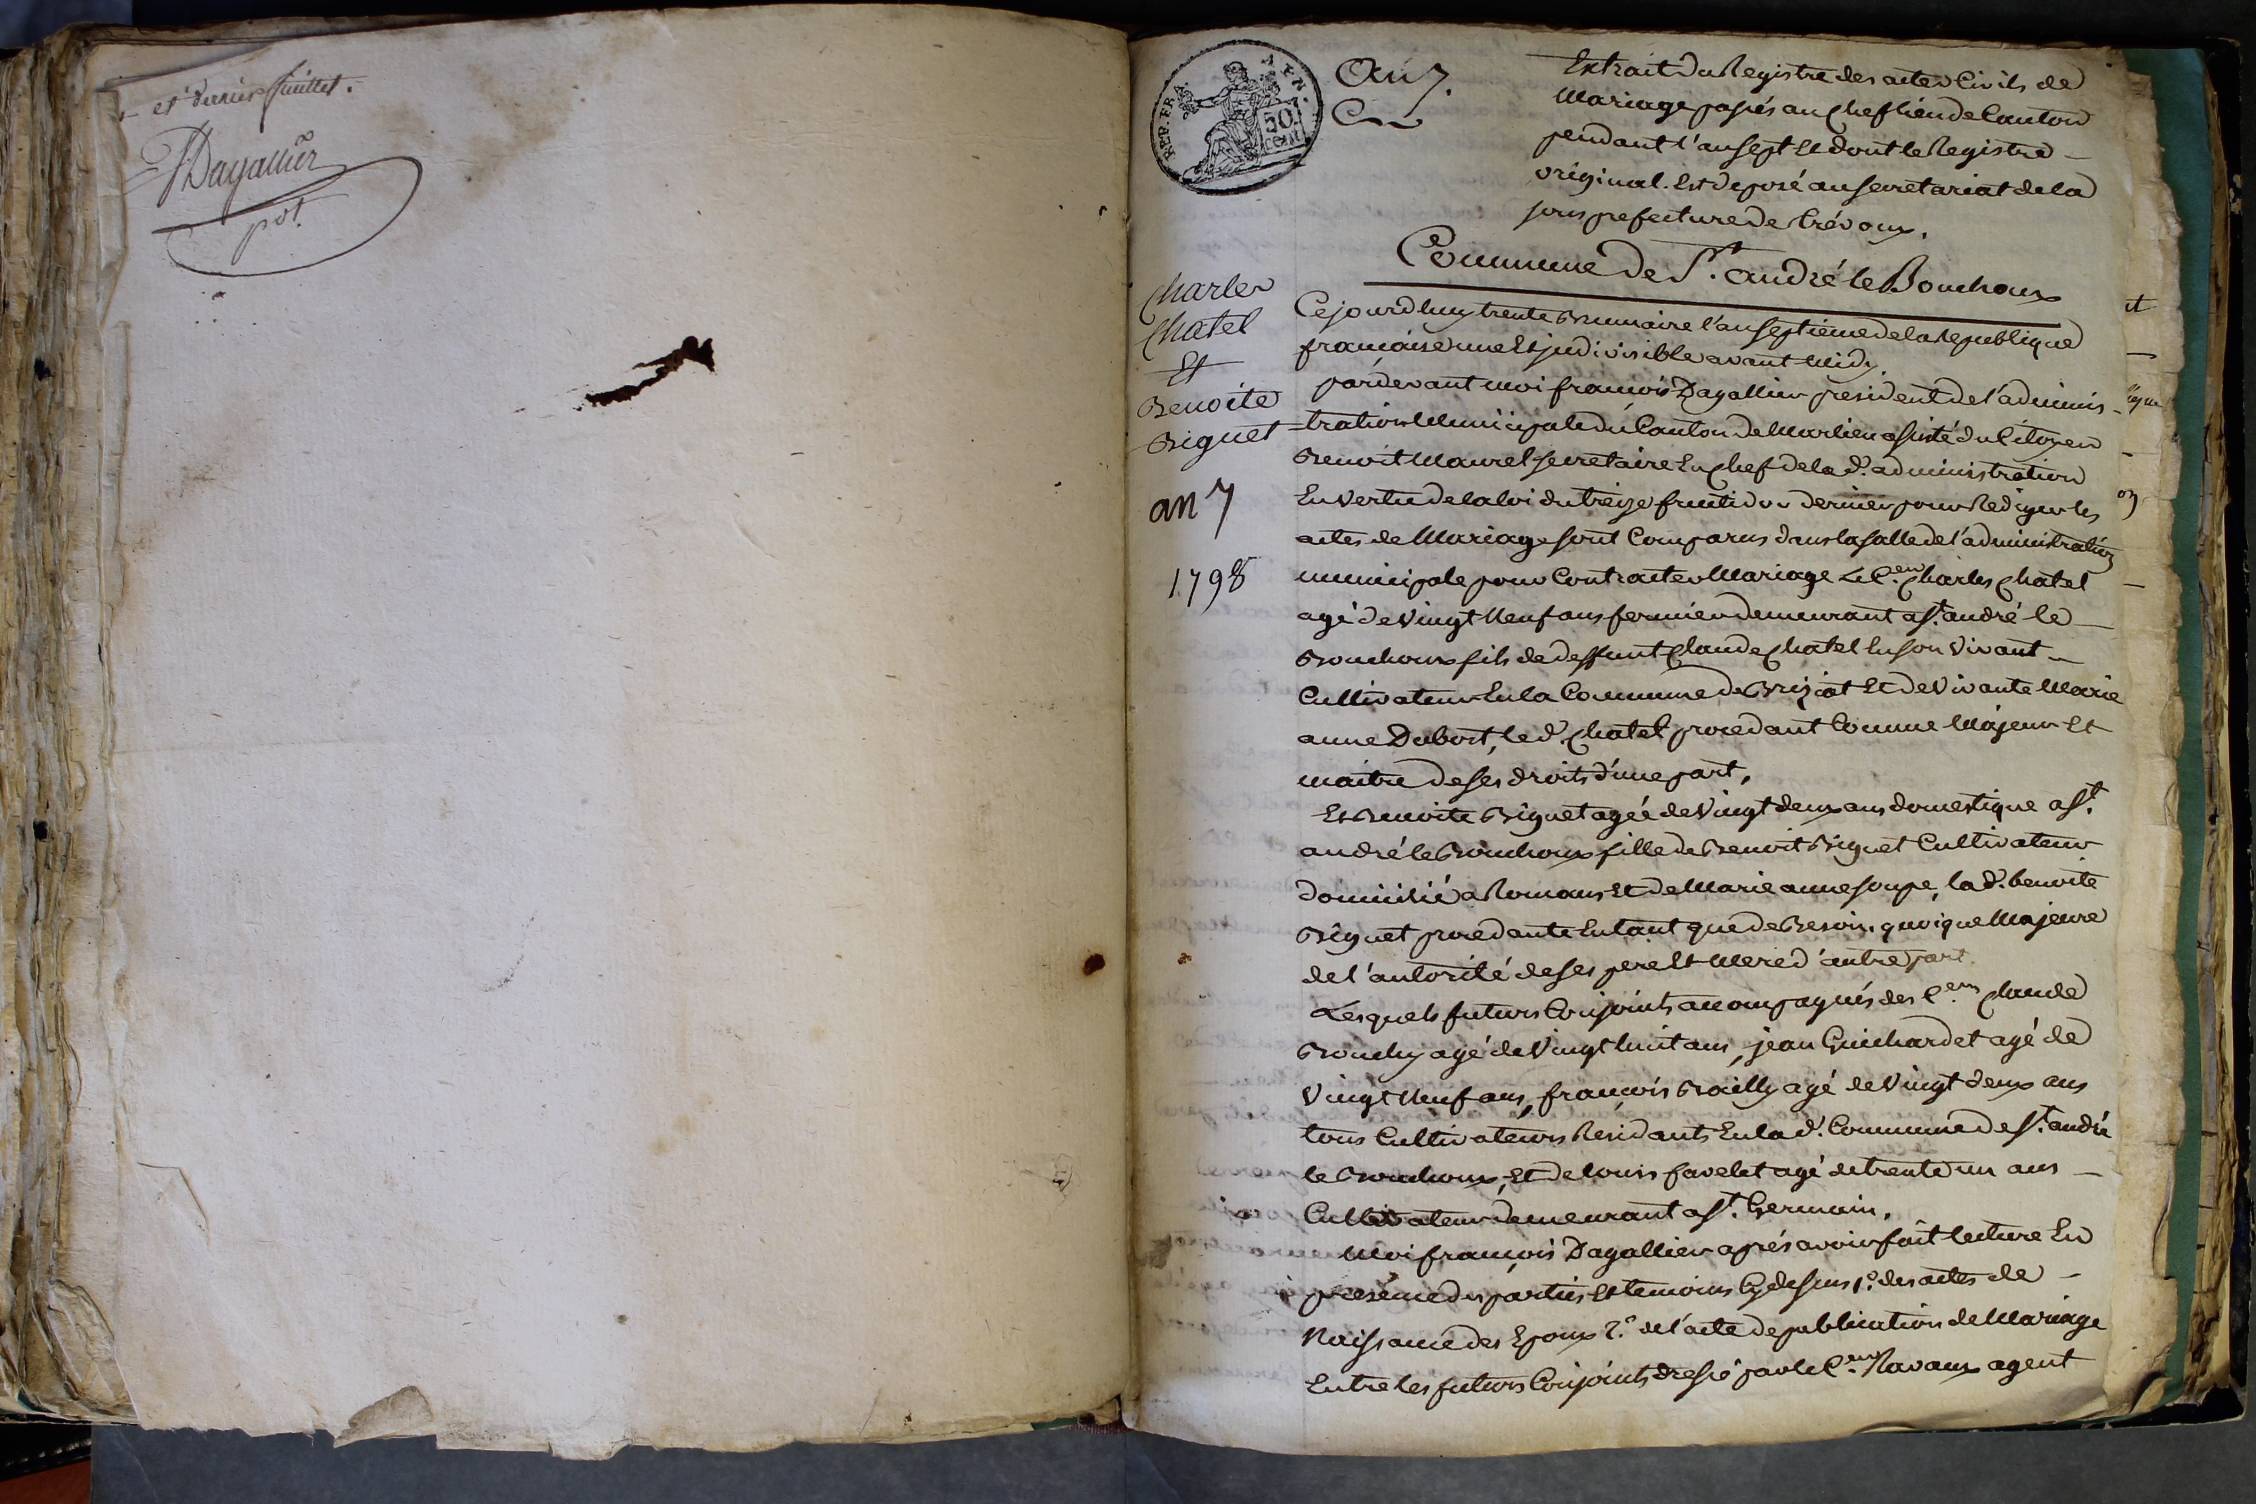 et dernier feuillet.
Dagallier
pdt.
REP. FRA
50.
CEN
An 7.
Extrait du Registre des actes Civils de
Mariage passés au Chef lieu de Canton
pendant l'an sept Et dont le Registre
original Est deposé au secretariat de la
sous prefecture de trévoux.
Commune de St. andré le Bouchoux
Charles
Chatel
Et
Benoite
Biguet
an 7
1798
Cejourdhuy trente Brumaire l'an septieme de la Republique
francaise une Et indivisible avant midy.
pardevant moi francois Dagallier president de l'adminis
tration Municipale du Canton de Marlieu assisté du Citoyen
Benoit Maurel secretaire En Chef de la d. administration
En vertu de la loi du treize fructidor dernier pour Rediger les
actes de Mariage sont Comparus dans la salle de l'administration
municipale pour Contracter Mariage Le C.en Charles Chatel
agé de vingt neuf ans fermier demeurant a St. andré le
Bouchoux fils de deffunt Claude Chatel En son vivant
Cultivateur En la Commune de Biziat Et de vivante Marie
anne Dubost, le d. Chatel procedant Comme Majeur Et
maitre de ses droits d'une part,
Et Benoite Biguet agée de vingt deux ans domestique a St.
andré le Bouchoux fille de Benoit Biguet Cultivateur
domicilié a Romans Et de Marie anne soupe, la d. benoite
Biguet procedante Entant que de Besoin quoique Majeure
de l'autorité de ses pere Et mere d'autre part.
Lesquels futurs Conjoints accompagnés des C.ens Claude
Bouchy agé de vingt huit ans, jean Guichardet agé de
vingt neuf ans, francois Brailly agé de vingt deux ans
tous Cultivateurs Residants En la d. Commune de St. andré
le Bouchoux, Et de louis favelet agé de trente un ans
Cultivateur demeurant a St. Germain.
Moi francois Dagallier aprés avoir fait lecture En
presence des parties Et temoins Cy dessus 1.° des actes de
Naissance des Epoux 2.° de l'acte de publication de Mariage
Entre les futurs Conjoints dressé par le C.en Ravaux agent